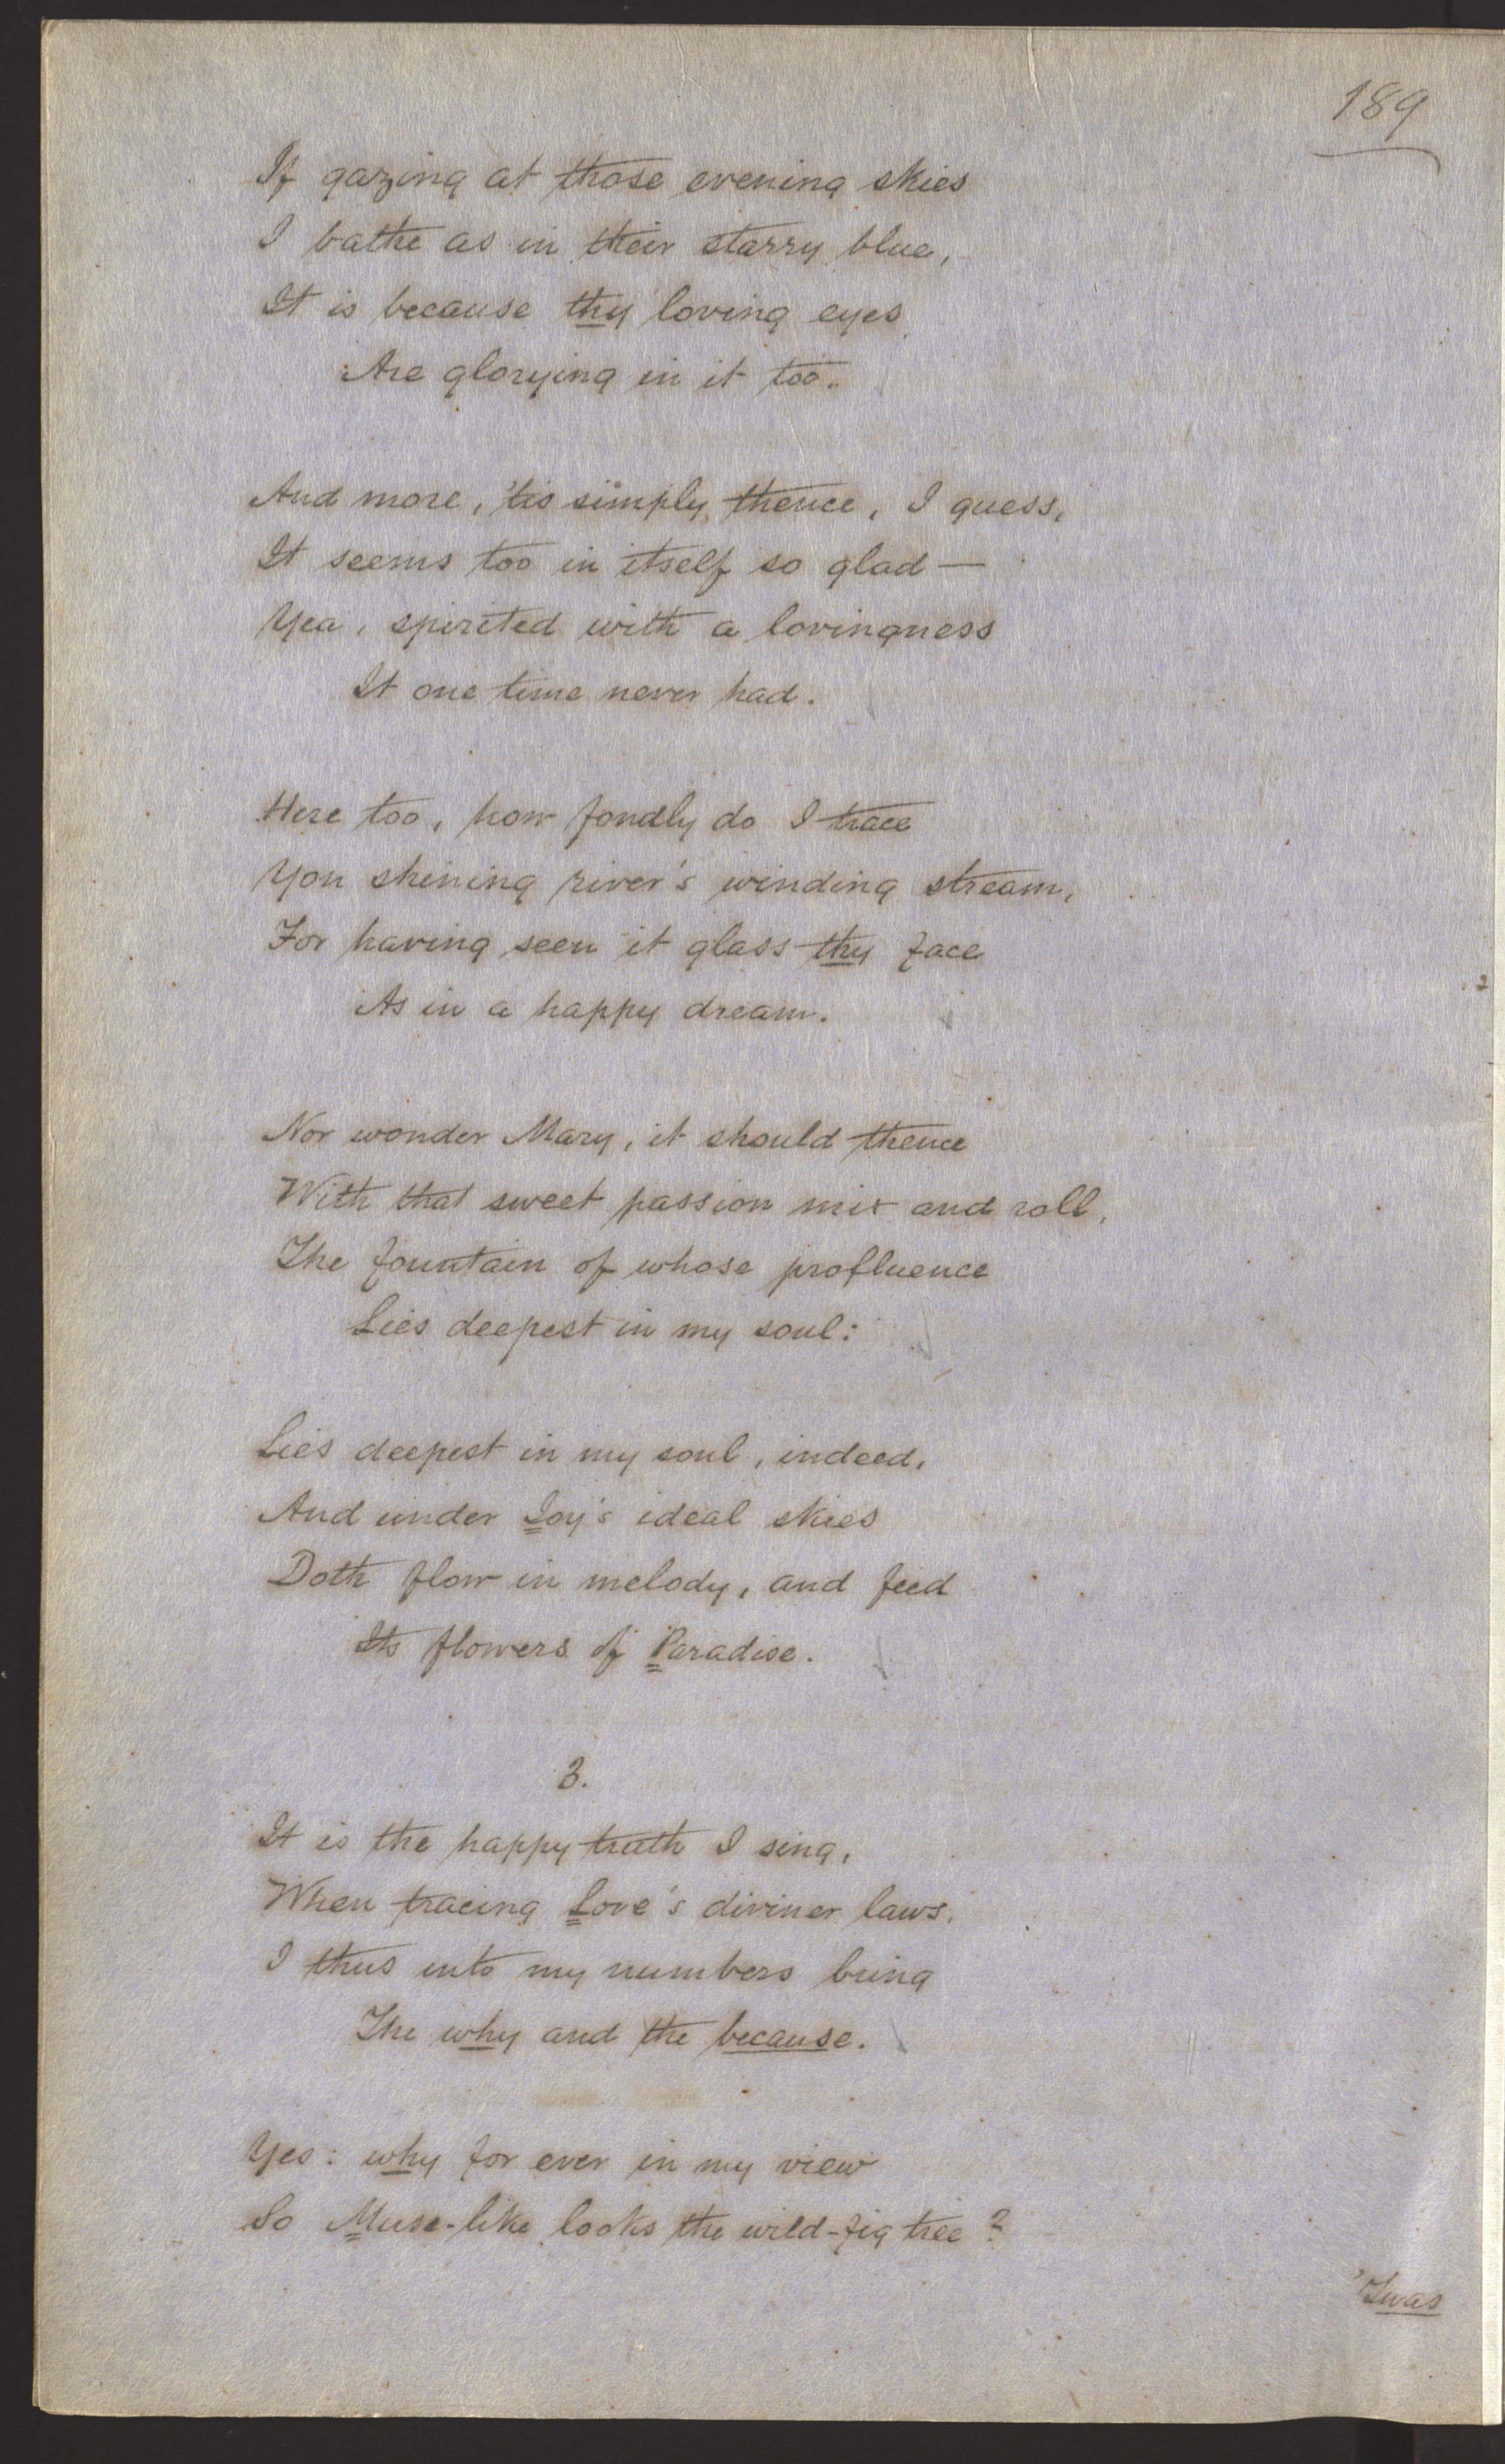 189
If gazing at those evening skies
I bathe as in their starry blue,
It is because thy loving eyes
Are glorying in it too.
And more, 'tis simply thence, I guess,
It seems too in itself so glad—
Yea, spirited with a lovingness
It one time never had.
Here too, how fondly do I trace
Yon shining river's winding stream,
For having seen it glass thy face
As in a happy dream.
Nor wonder Mary, it should thence
With that sweet passion mix and roll,
The fountain of whose profluence
Lies deepest in my soul:
Lies deepest in my soul, indeed,
And under Joy's ideal skies
Doth flow in melody, and feed
Its flowers of Paradise.
3.
It is the happy truth I sing,
When tracing Love's diviner laws,
I thus into my numbers bring
The why and the because.
Yes: why for ever in my view
So Muse-like looks the wild-fig tree?
'Twas